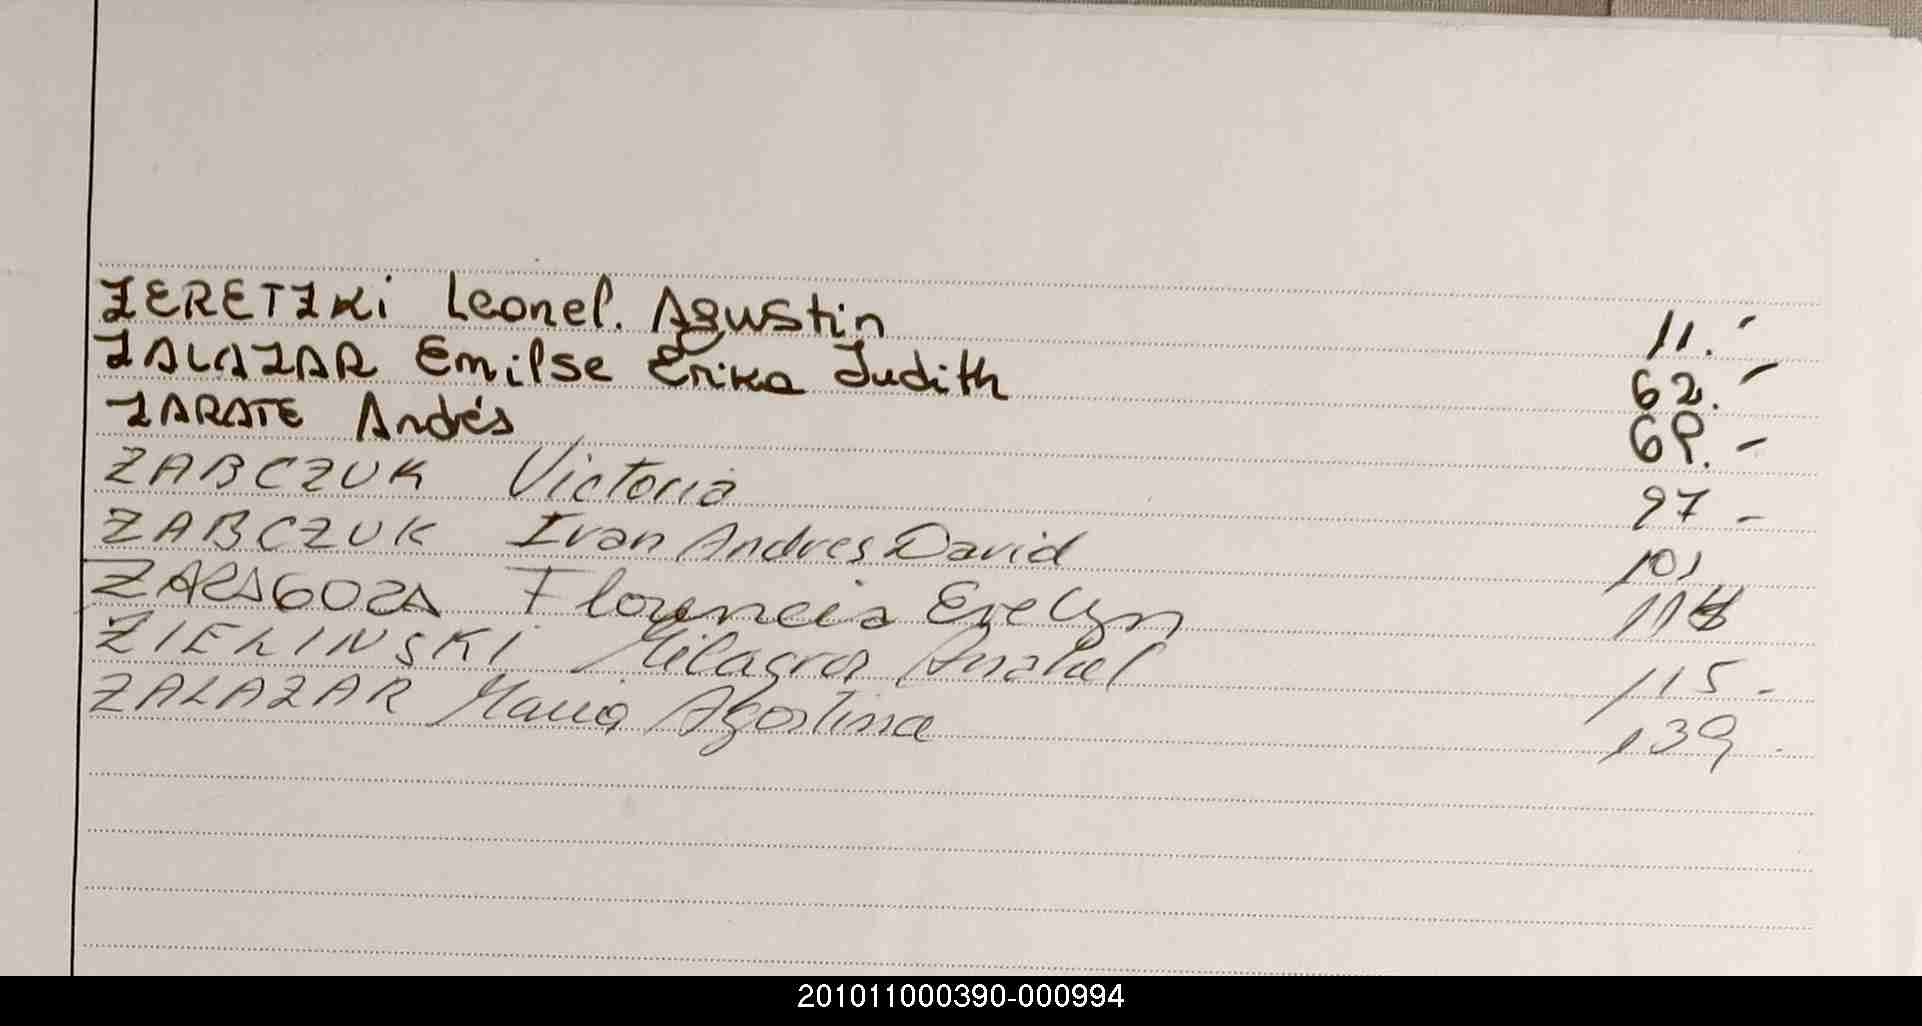 ZERETZKi Leonel. Agustin 11.-
ZALAZAR Emilse Erika Judith 62.-
ZARATE Andrés 69.-
ZABCZUK Victoria 97-
ZABCZUK Ivan Andres David 101
ZARAGOZA Florencia Evelyn
ZIELINSKI Milagros Anahel 115-
ZALAZAR Maria Agostina 139.
201011000390-000994